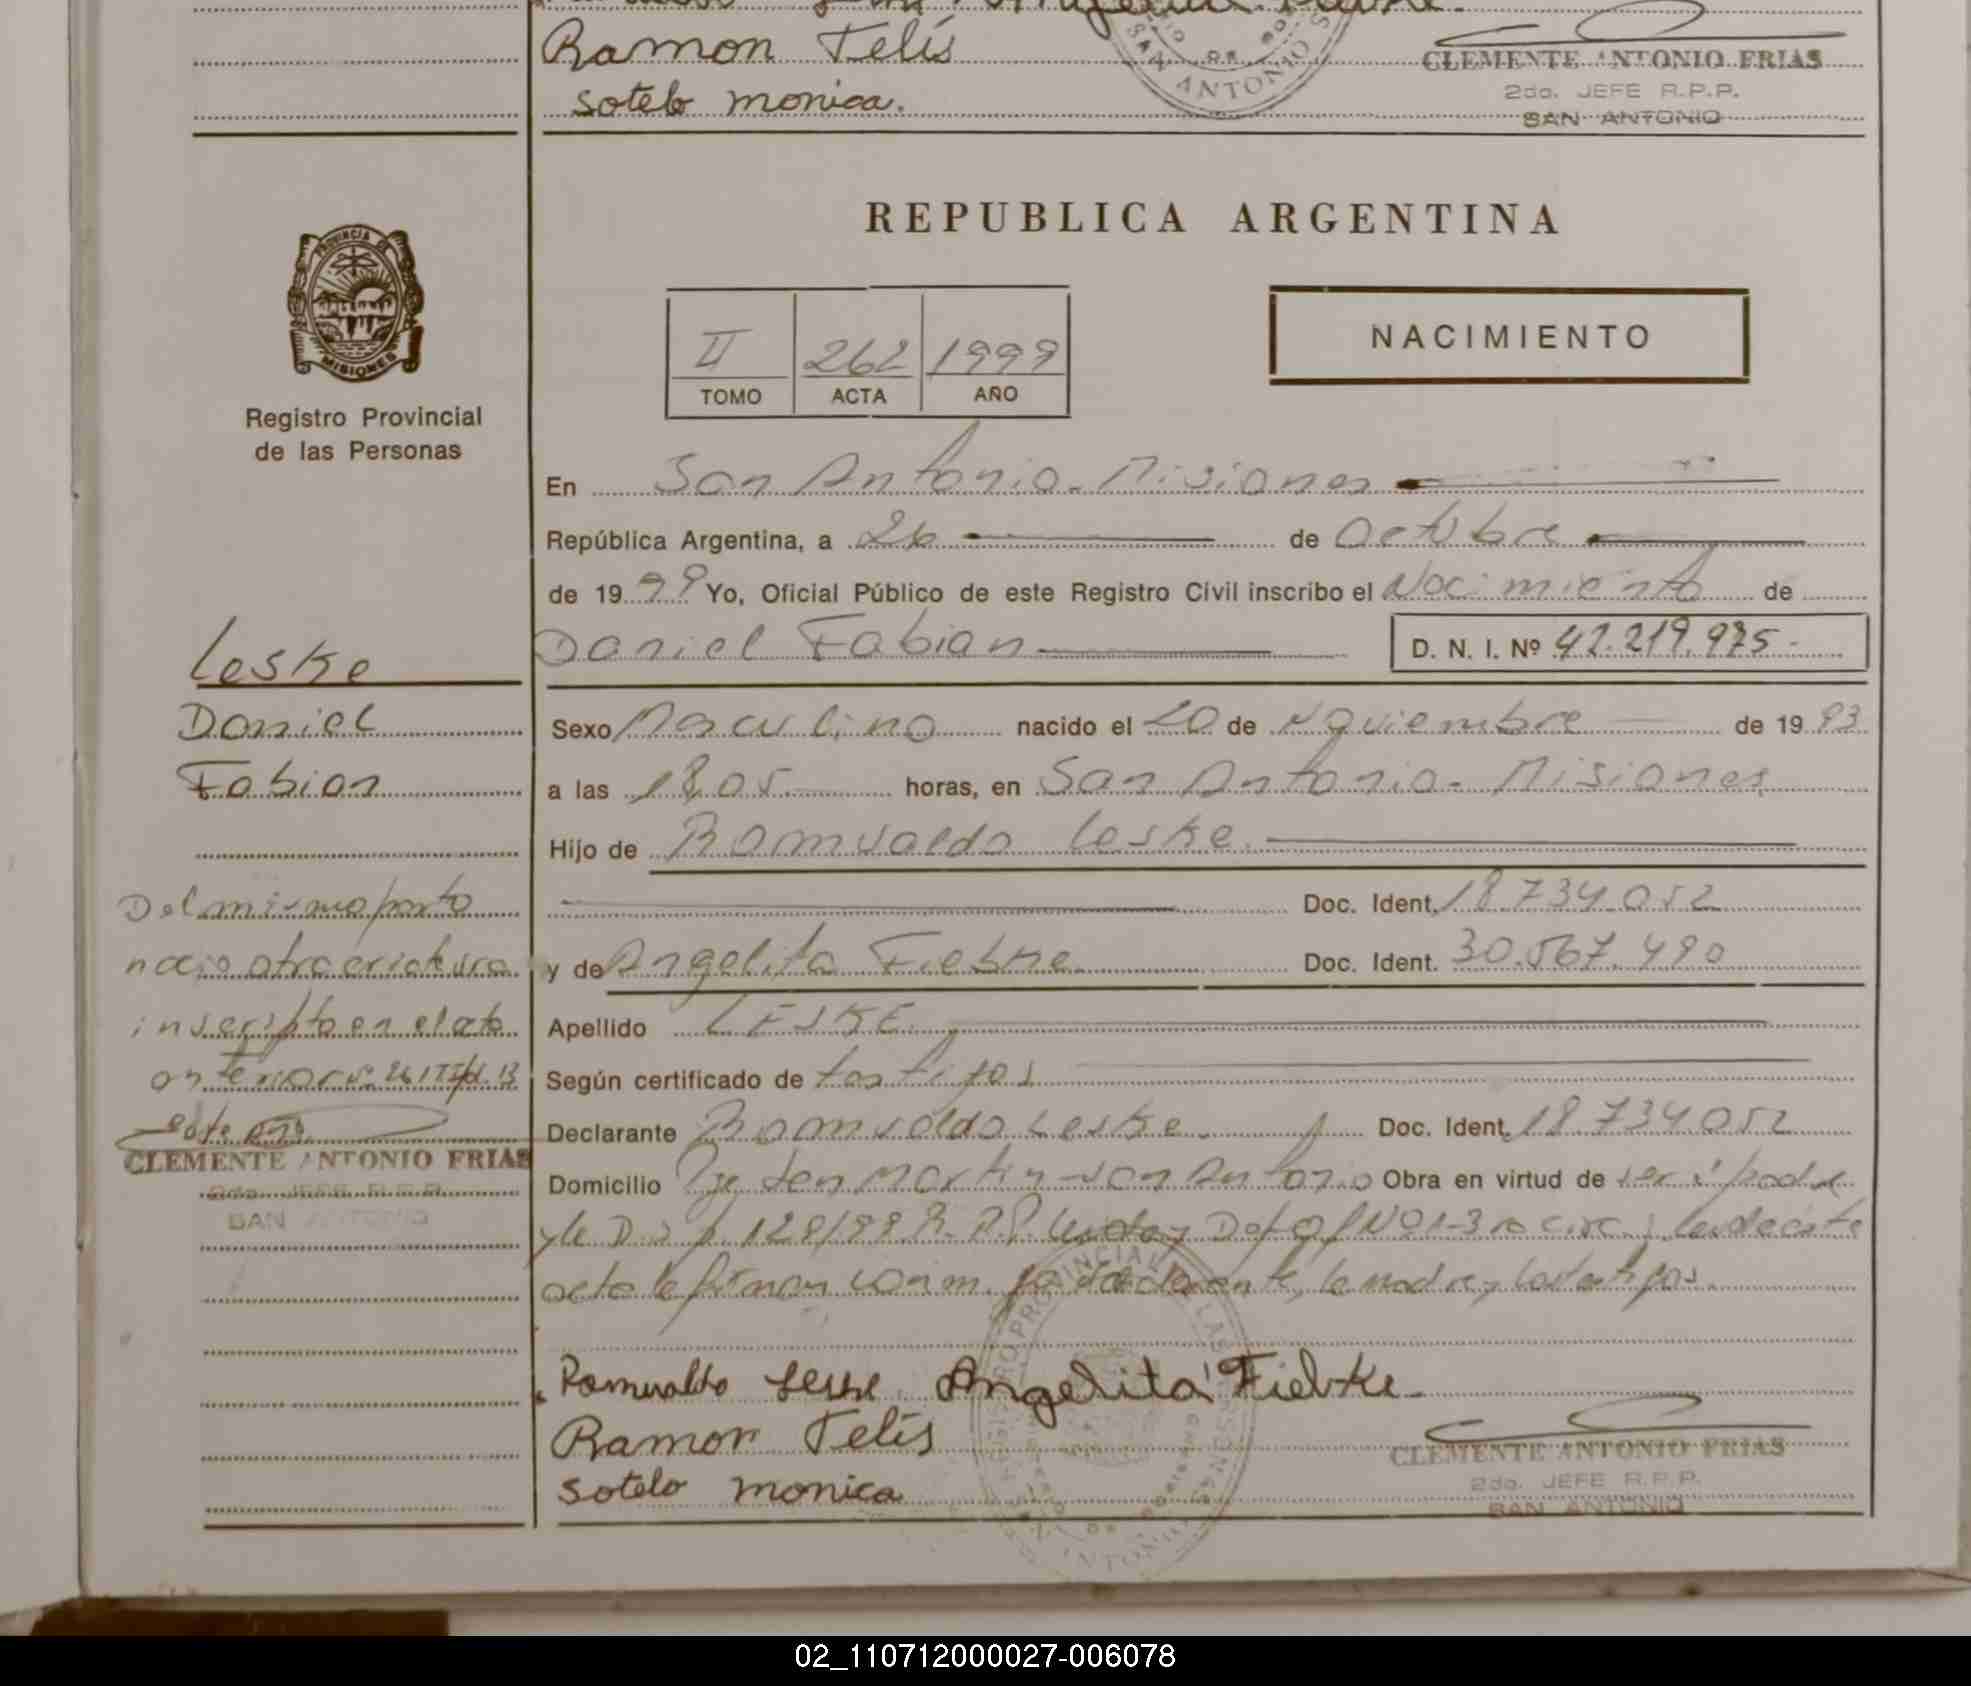 Ramon Telis
sotelo monica.
SAN ANTONIO
CLEMENTE ANTONIO FRIAS
2do. JEFE R.P.P.
SAN ANTONIO
REPUBLICA ARGENTINA
PROVINCIA DE
MISIONES
Registro Provincial
de las Personas
II 262 1999
TOMO ACTA AÑO
NACIMIENTO
En San Antonio - Misiones
República Argentina, a 26 de Octubre
de 1999 Yo, Oficial Público de este Registro Civil inscribo el Nacimiento de
Daniel Fabian D. N. I. Nº 42.219.975.-
Leske
Daniel
Fabian
Sexo Masculino nacido el 20 de Noviembre de 1993
a las 18,05 horas, en San Antonio - Misiones
Hijo de Romualdo Leske.
Doc. Ident. 18.734.052
y de Angelita Fiebke Doc. Ident. 30.567.490
Apellido LESKE
Según certificado de testigos
Declarante Romualdo Leske Doc. Ident. 18.734052
Domicilio San Martin - San Antonio Obra en virtud de ser el padre
y la 128/99 R.P.P.
acta la firman el declarante, la madre y los testigos.
Del mismo parto
nacio otra criatura
inscripto en el acta
anterior Nº 261
este año
CLEMENTE ANTONIO FRIAS
2do. JEFE R.P.P.
SAN ANTONIO
Romualdo Leske Angelita Fiebke
Ramon Telis
sotelo monica
CLEMENTE ANTONIO FRIAS
2do. JEFE R.P.P.
SAN ANTONIO
02_110712000027-006078